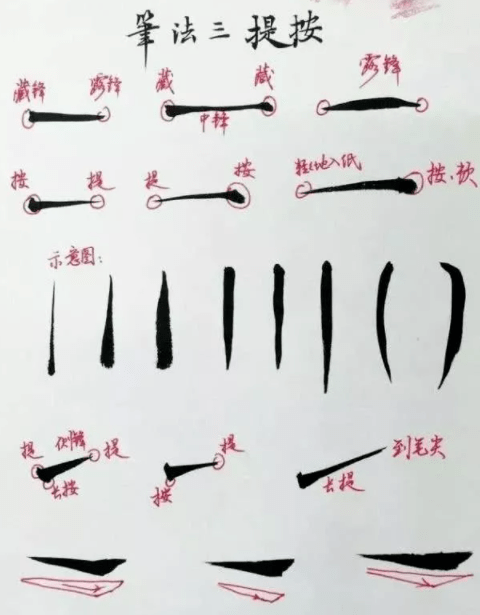 筆法三提按
藏鋒 露鋒 藏 藏 露鋒
中鋒
按 提 提 按 轻轻地入纸 按·顿
示意图:
提 侧鋒 提 提 到毛尖
去按 按 去提